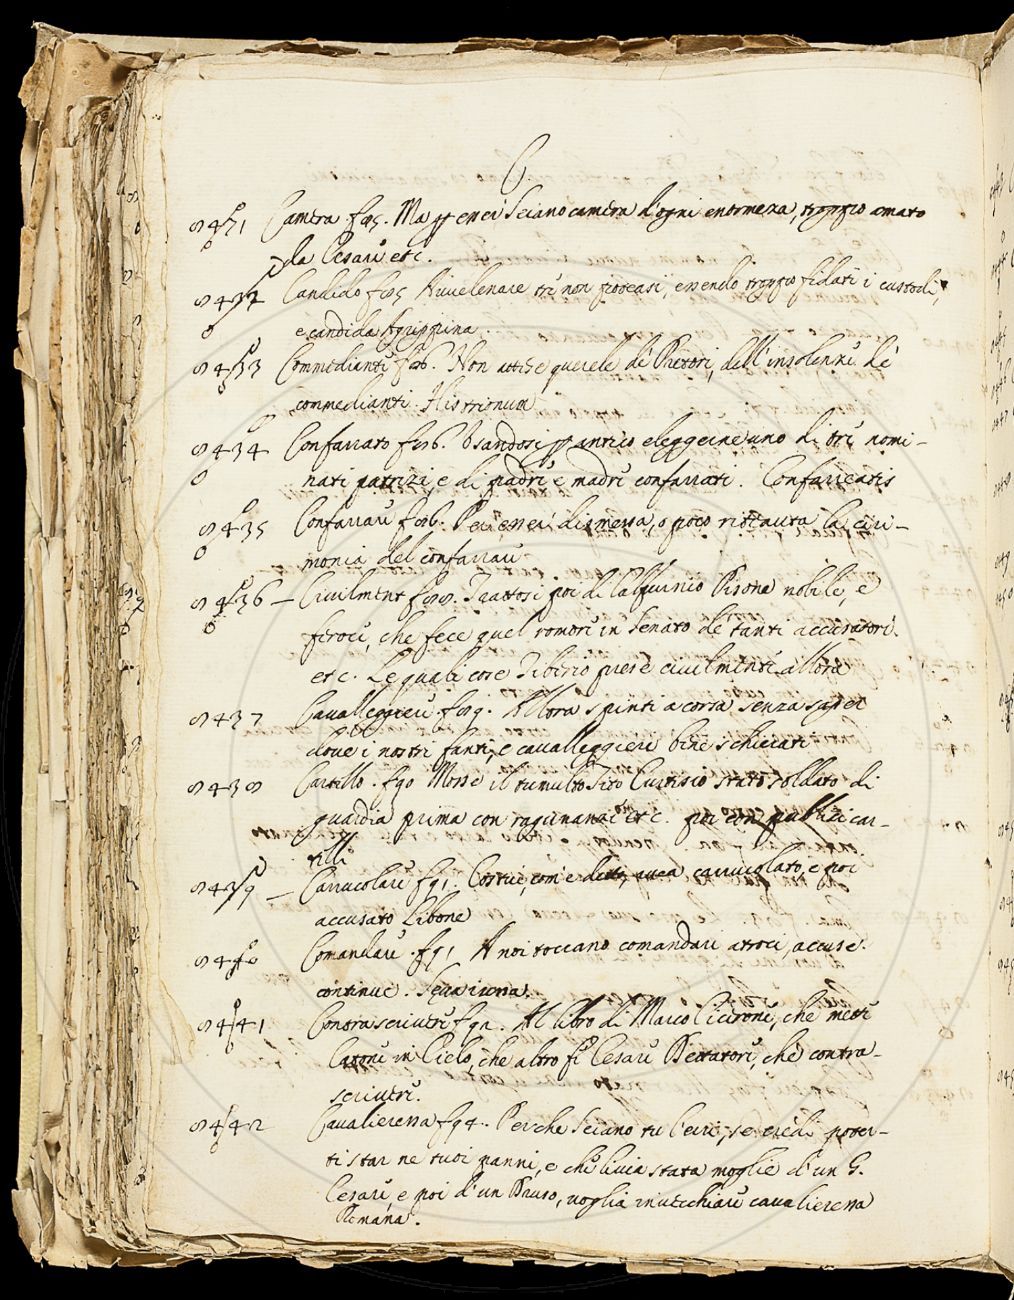 C.
Camera f85. Ma per esser Seiano camera d'ogni entomera, troppo amato
da Cesare etc.
Candido f85 Avvelenare tre non poteasi, essendo troppo fidati i custodi,
e candida Agrippina
Commedianti f86. Non attese querele de Pretori, dell'insolenze de
commedianti. Histrionum
9434 Confarrato f86. Usandosi per antico eleggerne uno di tre nomi-
nati patrizi, e di padre e madre confarrati. Confarreatis
9435 Confarrare f86. Per esser dismessa, o poco ristaurata la ceri-
monia del confarrare
9436 Civilmente Trattosi poi di Calpurnio Pisone nobile, e
feroce, che fece quel romore in Senato de tanti accusatori.
etc. Le quali cose Tiberio prese civilmente allora
9437 Cavalleggiere f89. Allora spinti a corsa senza saper
dove i nostri fanti, e cavalleggieri bene schierati
9438 Cartello. f90 Mosse il tumulto Tito Curtisio stato soldato di
guardia prima con ragunanze etc. poi con publici car-
telli
9439 Carrucolare f91. Costui, com'è detto, avea carrucolato, e poi
accusato Libone
Comandare. f91 A noi toccano comandari atroci, accuse
continue. Seva iussa.
9441 Contrascrivere f92. Al libro di Marco Cicerone, che mette
Catone in Cielo, che altro fe Cesare Dettatore, che contra-
scrivere.
9442 Cavalieressa f94. Perche Seiano tu l'erri, se credi poter-
ti star ne tuoi panni, e che Livia stata moglie d'un G.
Cesare, e poi d'un Druso, voglia invecchiare cavalieressa
Romana.